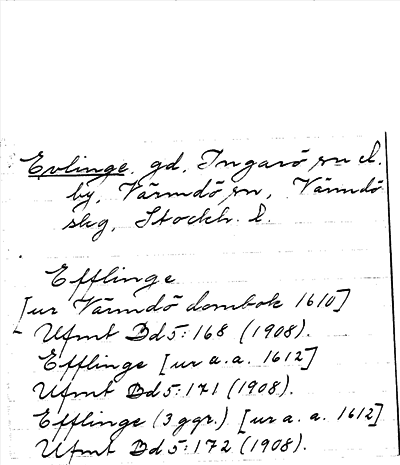 Evlinge. gd, Ingarö sn el.
by, Värmdö sn, Värmdö
skg, Stockh. l.
Efflinge
[ur Värmdö dombok 1610]
Ufmt Bd 5:168 (1908).
Efflinge [ur a.a. 1612]
Ufmt Bd 5:171 (1908).
Efflinge (3 ggr.) [ur a. a. 1612]
Ufmt Bd 5:172 (1908).